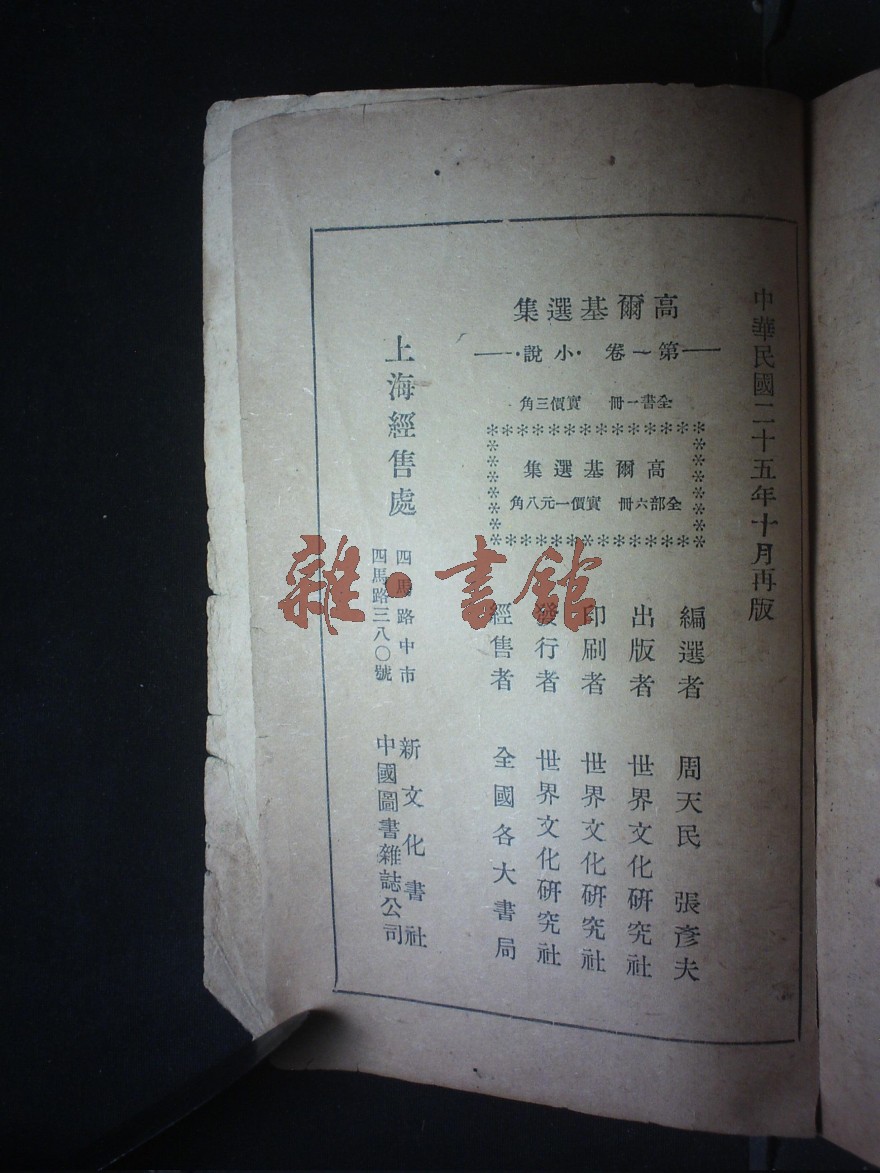 中華民國二十五年十月再版
高爾基選集
第一卷·小說·
全書一冊 實價三角
高爾基選集
全部六冊 實價一元八角
編選者 周天民 張彥夫
出版者 世界文化研究社
印刷者 世界文化研究社
發行者 世界文化研究社
經售者 全國各大書局
上海經售處
四馬路中市 新文化書社
四馬路三八〇號 中國圖書雜誌公司
雜·書館